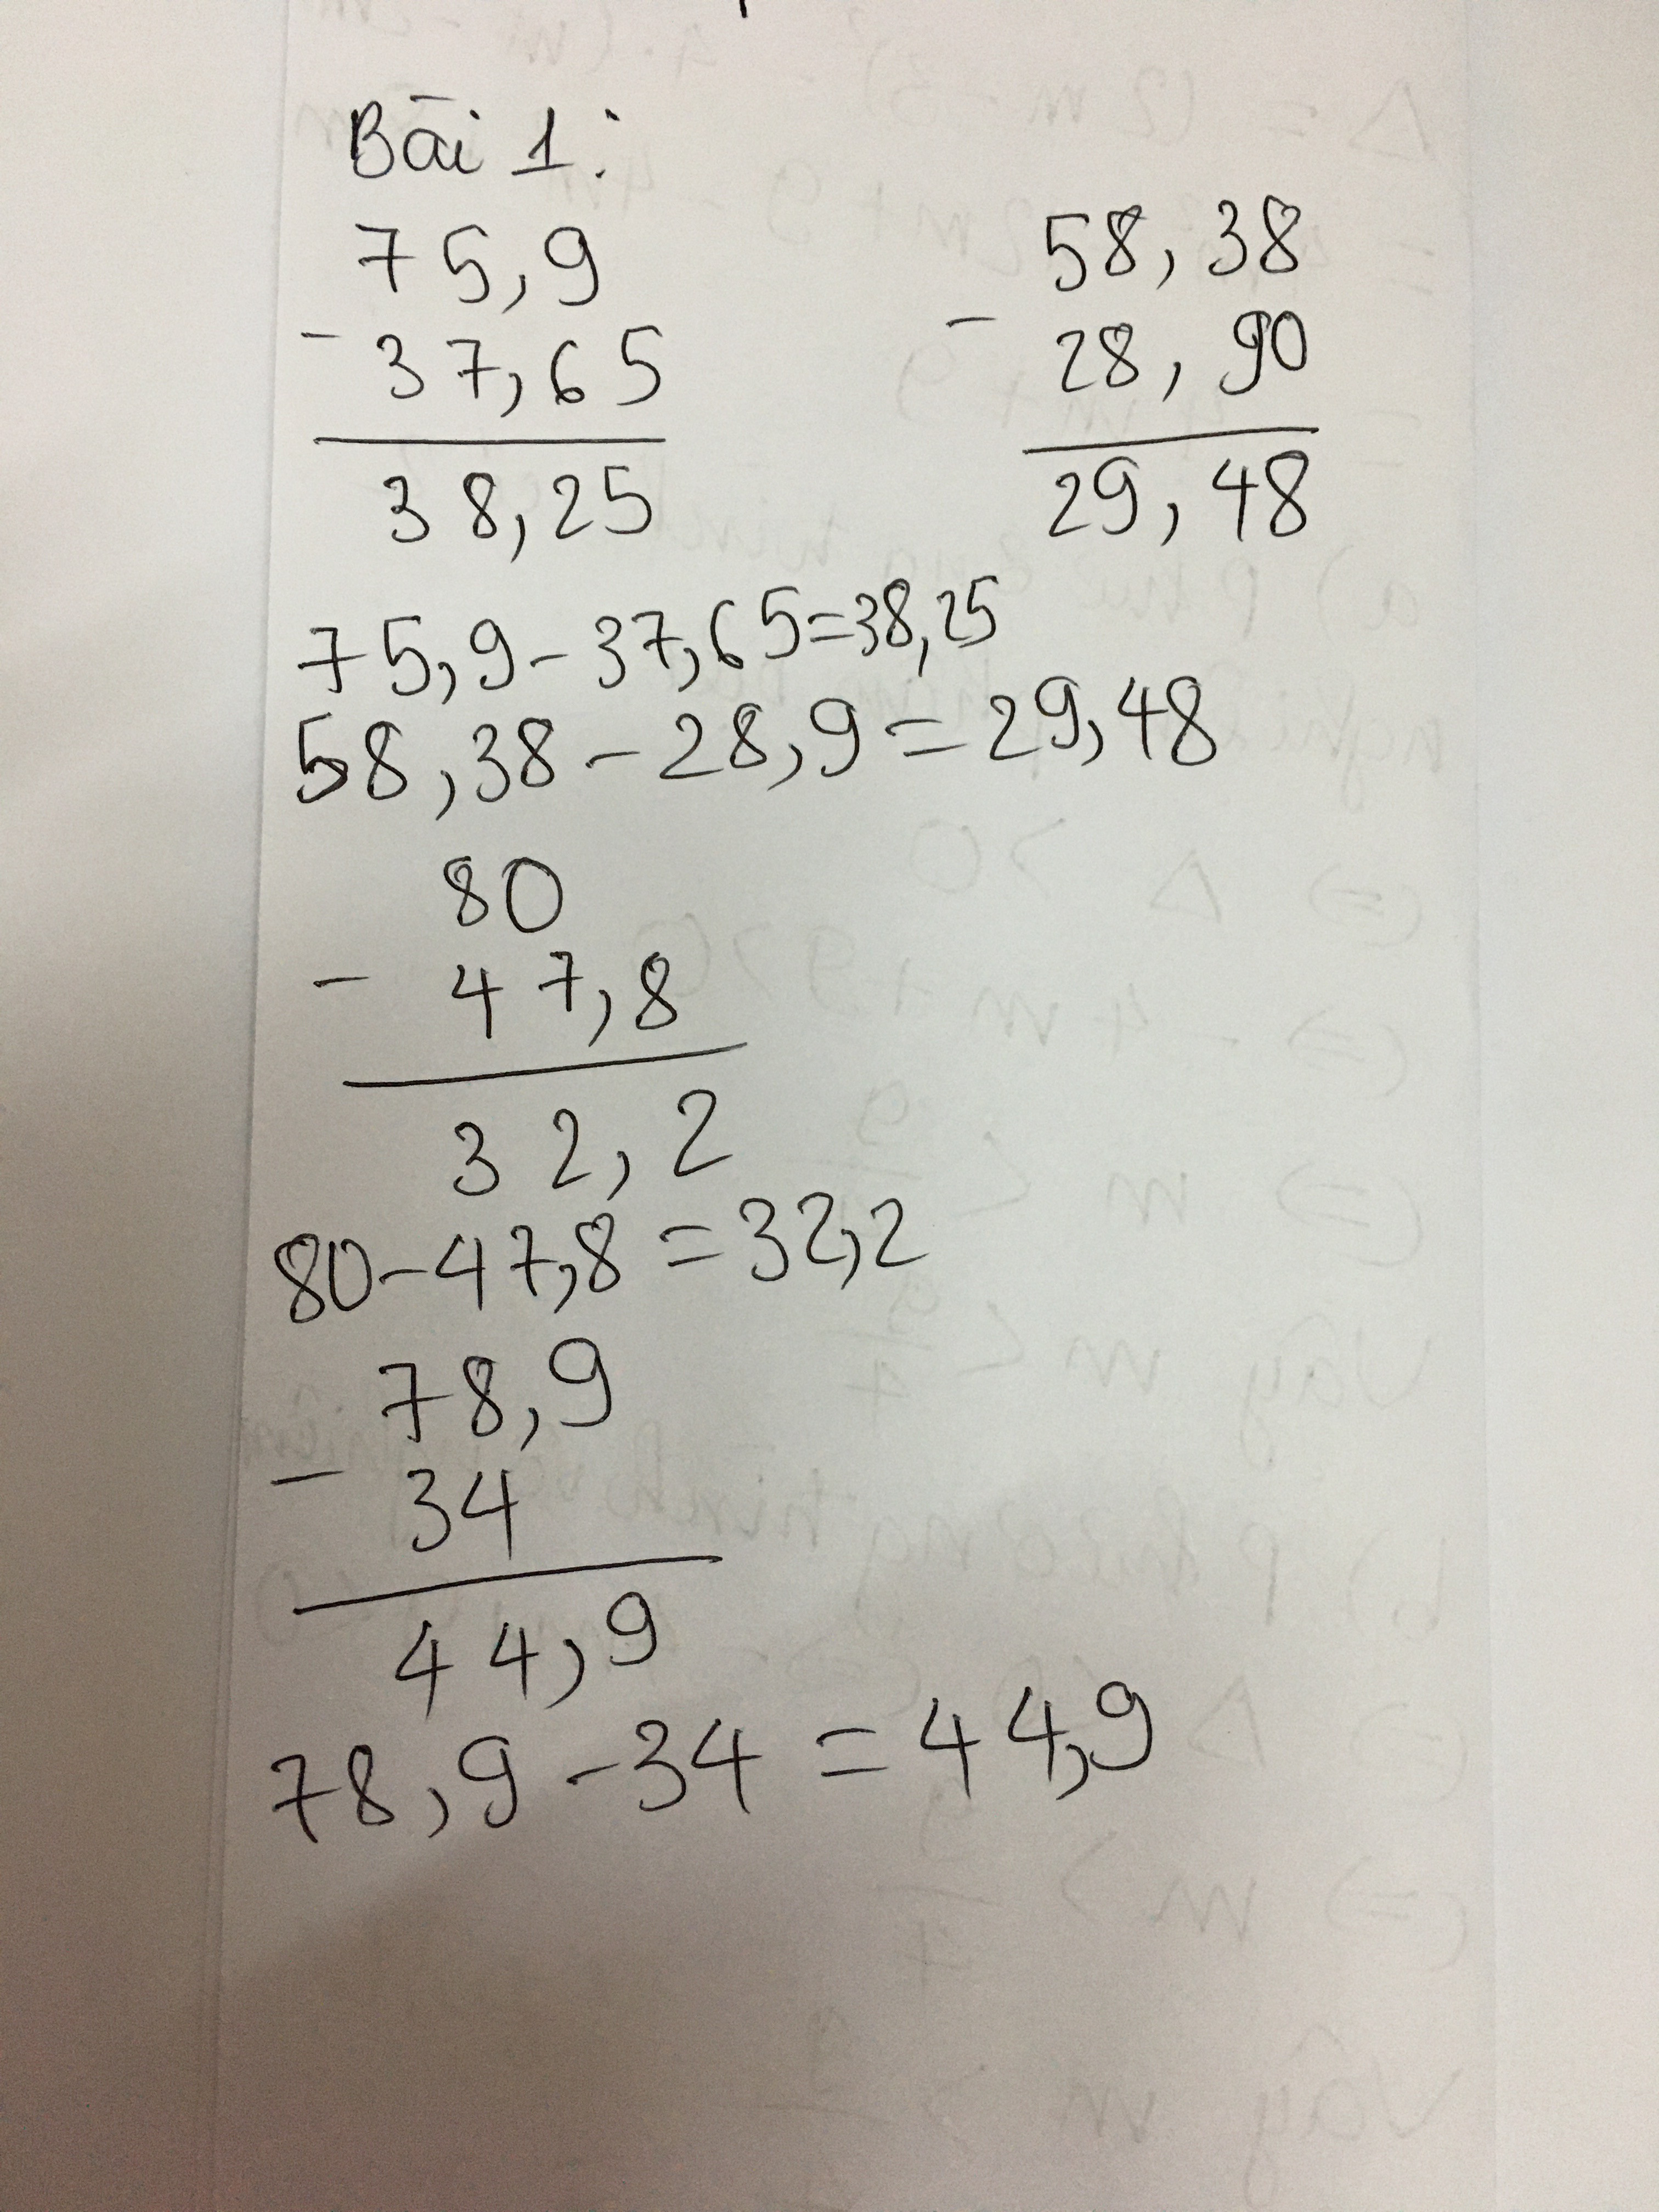 Bài 1:
75,9
- 37,65
38,25
58,38
- 28,90
29,48
75,9-37,65=38,25
58,38-28,9=29,48
80
- 47,8
32,2
80-47,8=32,2
78,9
- 34
44,9
78,9-34=44,9